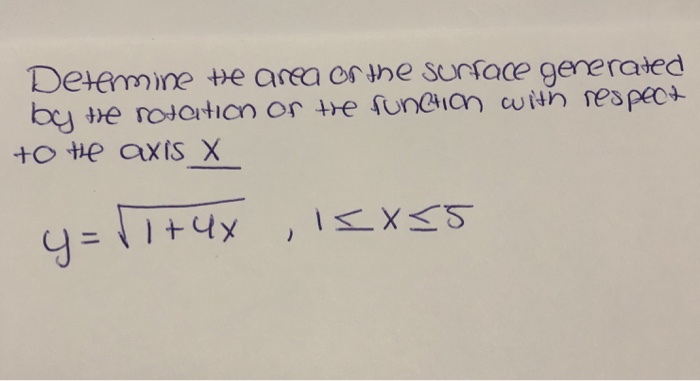 Determine the area of the surface generated
by the rotation of the function with respect
to the axis x
y = √1+4x , 1 ≤ x ≤ 5